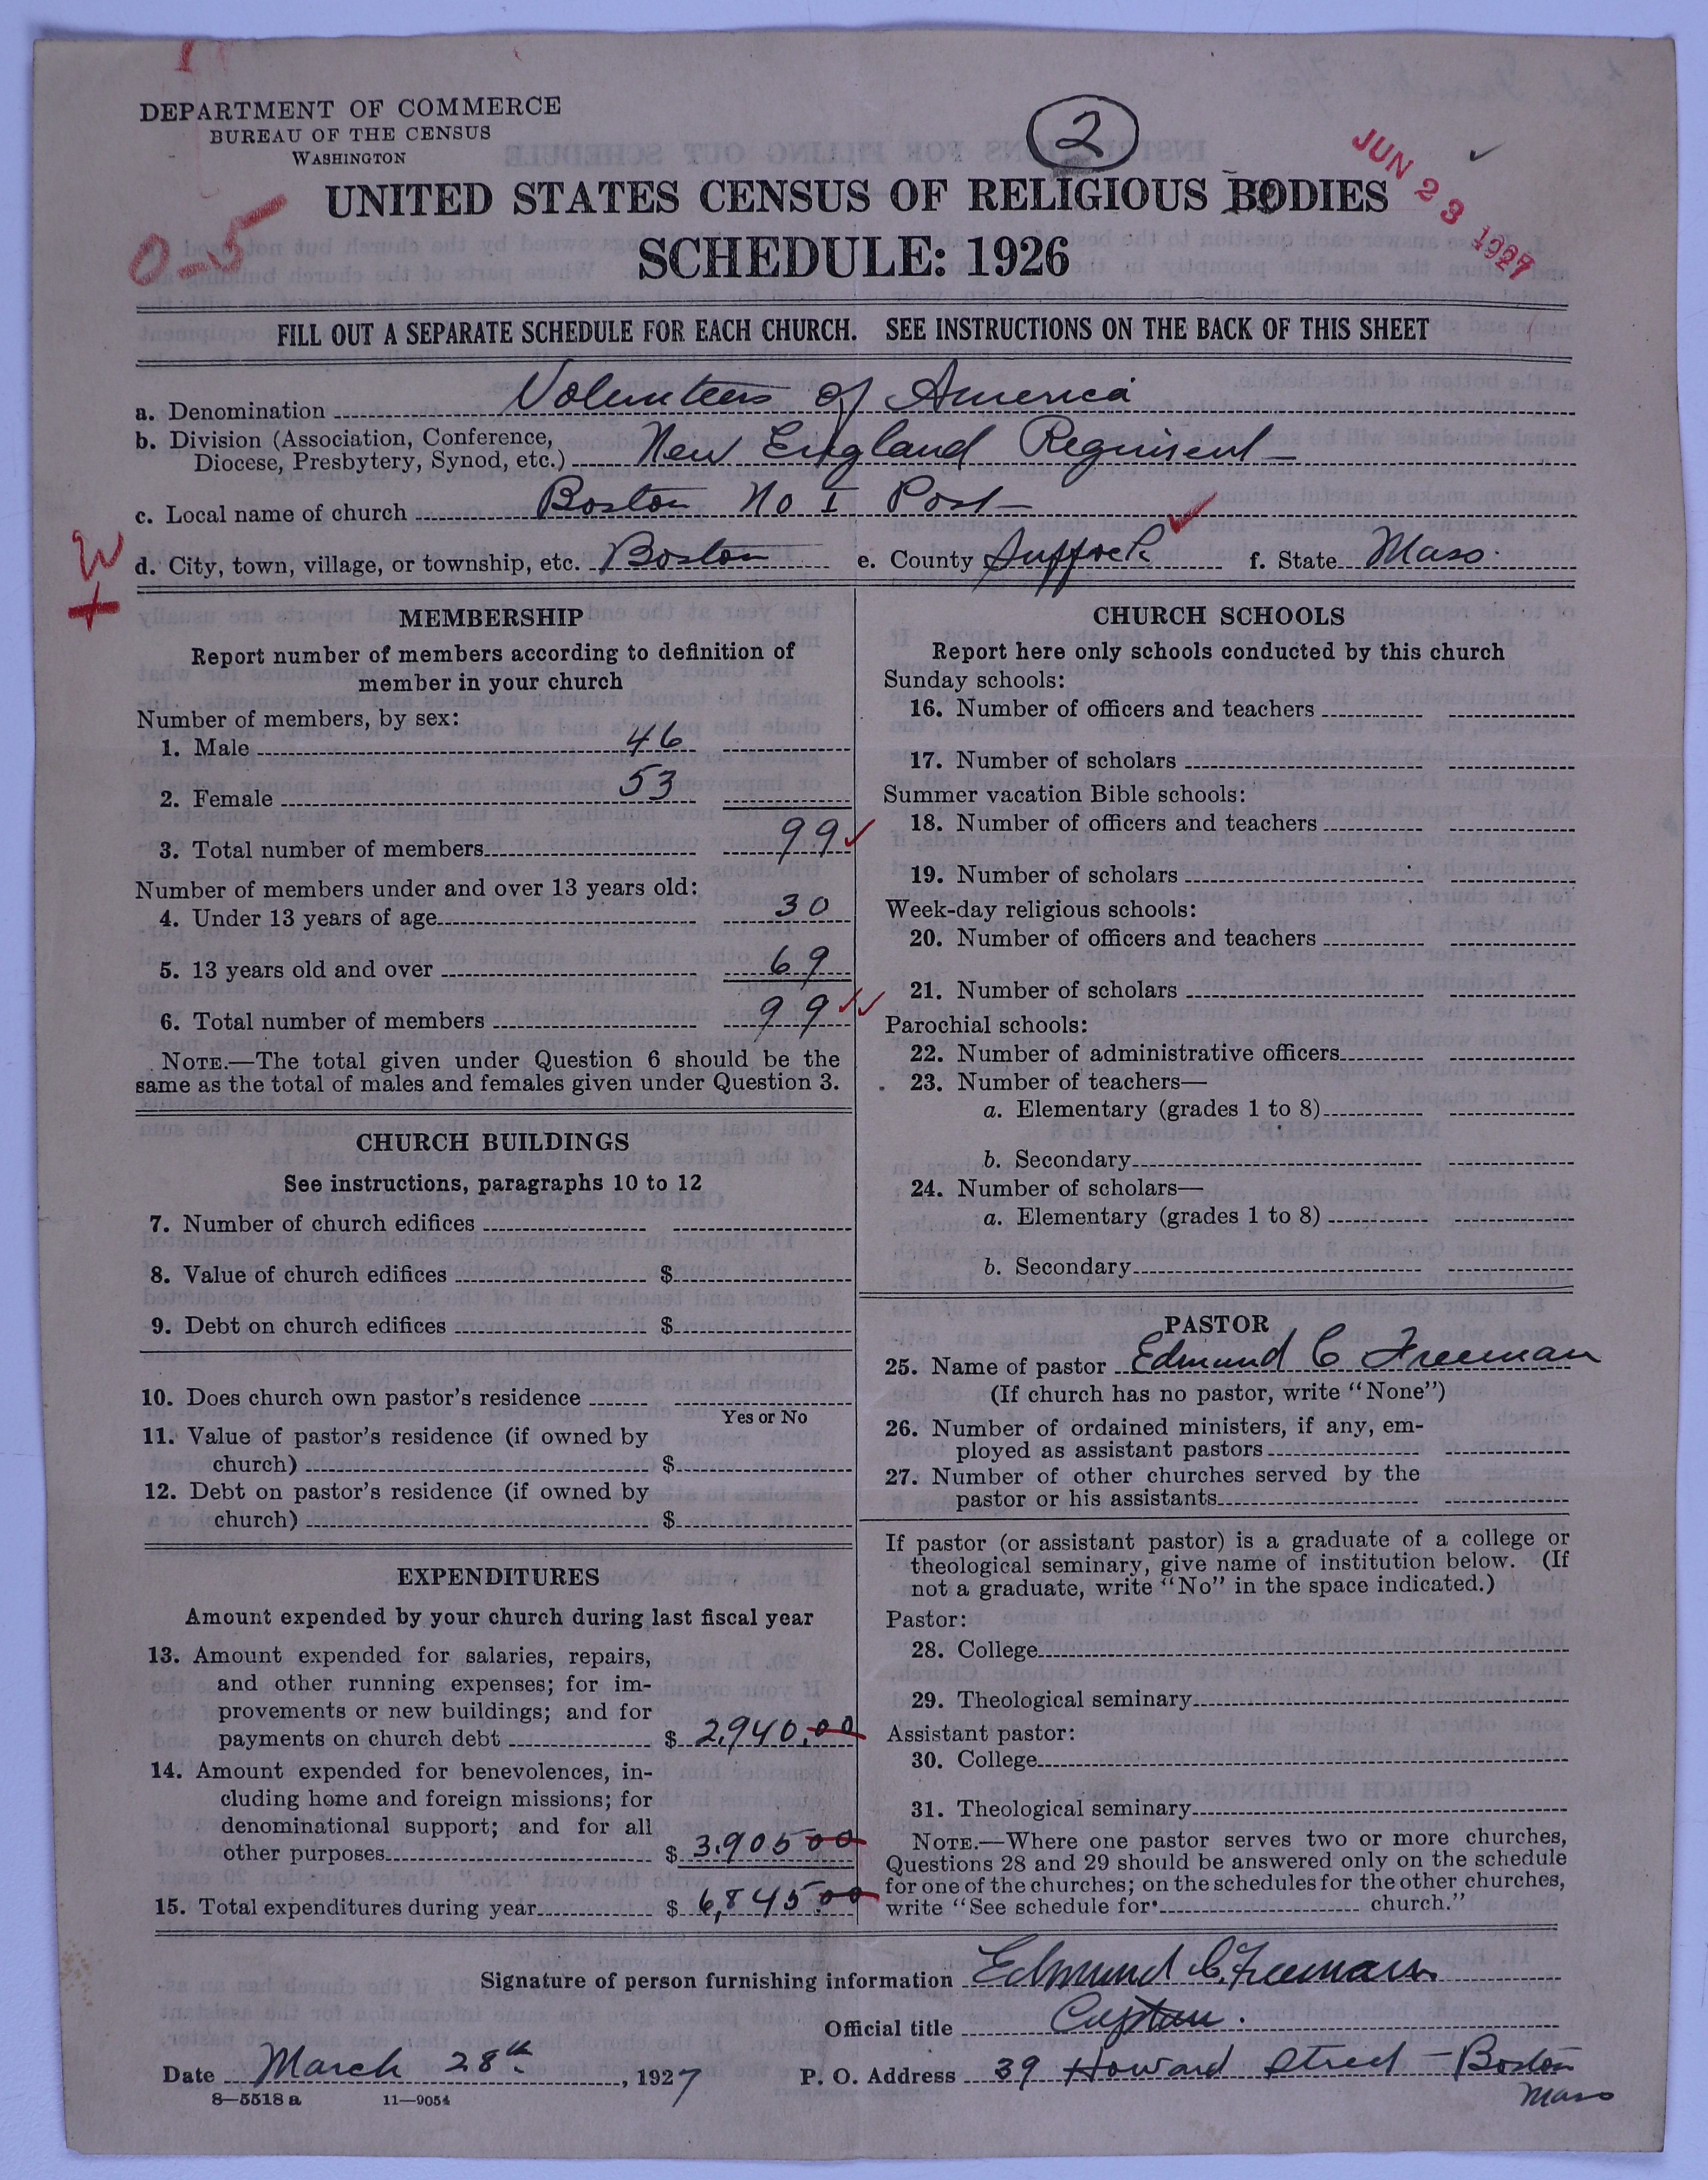 DEPARTMENT OF COMMERCE
BUREAU OF THE CENSUS
WASHINGTON
2
JUN 23 1927
UNITED STATES CENSUS OF RELIGIOUS BODIES
0-5
SCHEDULE: 1926
FILL OUT A SEPARATE SCHEDULE FOR EACH CHURCH. SEE INSTRUCTIONS ON THE BACK OF THIS SHEET
a. Denomination Volunteers of America
b. Division (Association, Conference,
Diocese, Presbytery, Synod, etc.) New England Regiment
c. Local name of church Boston No I Post
d. City, town, village, or township, etc. Boston e. County Suffolk f. State Mass.
MEMBERSHIP
Report number of members according to definition of
member in your church
Number of members, by sex:
1. Male 46
2. Female 53
3. Total number of members 99
Number of members under and over 13 years old:
4. Under 13 years of age 30
5. 13 years old and over 69
6. Total number of members 99
NOTE.—The total given under Question 6 should be the
same as the total of males and females given under Question 3.
CHURCH BUILDINGS
See instructions, paragraphs 10 to 12
7. Number of church edifices
8. Value of church edifices $
9. Debt on church edifices $
10. Does church own pastor's residence
Yes or No
11. Value of pastor's residence (if owned by
church) $
12. Debt on pastor's residence (if owned by
church) $
EXPENDITURES
Amount expended by your church during last fiscal year
13. Amount expended for salaries, repairs,
and other running expenses; for im-
provements or new buildings; and for
payments on church debt $ 2,940.00
14. Amount expended for benevolences, in-
cluding home and foreign missions; for
denominational support; and for all
other purposes $ 3,905 00
15. Total expenditures during year $ 6,845.00
CHURCH SCHOOLS
Report here only schools conducted by this church
Sunday schools:
16. Number of officers and teachers
17. Number of scholars
Summer vacation Bible schools:
18. Number of officers and teachers
19. Number of scholars
Week-day religious schools:
20. Number of officers and teachers
21. Number of scholars
Parochial schools:
22. Number of administrative officers
23. Number of teachers—
a. Elementary (grades 1 to 8)
b. Secondary
24. Number of scholars—
a. Elementary (grades 1 to 8)
b. Secondary
PASTOR
25. Name of pastor Edmund C Freeman
(If church has no pastor, write "None")
26. Number of ordained ministers, if any, em-
ployed as assistant pastors
27. Number of other churches served by the
pastor or his assistants
If pastor (or assistant pastor) is a graduate of a college or
theological seminary, give name of institution below. (If
not a graduate, write "No" in the space indicated.)
Pastor:
28. College
29. Theological seminary
Assistant pastor:
30. College
31. Theological seminary
NOTE.—Where one pastor serves two or more churches,
Questions 28 and 29 should be answered only on the schedule
for one of the churches; on the schedules for the other churches,
write "See schedule for church."
Signature of person furnishing information Edmund C. Freeman
Official title Captain.
Date March 28th, 1927 P. O. Address 39 Howard Street - Boston
Mass
8-5518 a 11-9054